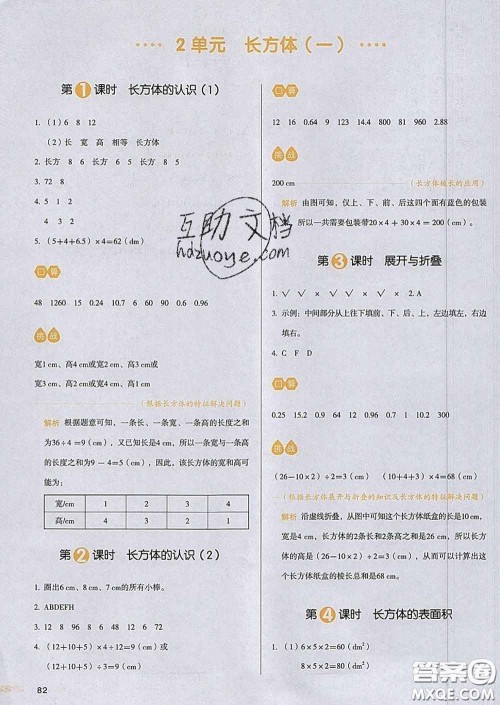 2 单元 长方体（一）
第1课时 长方体的认识（1）
1. （1）6 8 12
（2）长 宽 高 相等 长方体
2. 长方 8 6 长方 6 5 长方 8 5
3. 72 8
4. 1 3 5
5 4 2
4 1 3 2
5. （5+4+6.5）×4=62（dm）
口算
48 1260 15 0.24 10.7 6 60 6 0.6 0.96
挑战
宽1cm、高4cm或宽2cm、高3cm或
宽3cm、高2cm或宽4cm、高1cm
（根据长方体的特征解决问题）
解析 根据题意可知，一条长、一条宽、一条高的长度之和
为36÷4=9（cm），又已知长是4cm，所以一条宽与一条高
的长度之和为9-4=5（cm），因此，该长方体的宽和高可
能为：
宽/cm 1 2 3 4
高/cm 4 3 2 1
第2课时 长方体的认识（2）
1. 圈出6cm、8cm、7cm的所有小棒。
2. ABDEFH
3. 9 8 12 8 96 8 48 12 6 72
4. （12+10+5）×4=108（cm）
（12+10+5）÷3=9（cm）
82
口算
12 16 0.64 9 123 144 814 800 960 2.88
挑战
200cm
（长方体棱长的应用）
解析 由图可知，仅上、下、前、后这四个面有蓝色的包装
所以一共需要包装带20×4+30×4=200（cm）。
第3课时 展开与折叠
1. √ √ √ × √ × 2. A
3. 示例：中间部分从上往下填前、下、后、上，左边填左，右
边填右。
4. C F D
口算
0.25 15.2 9 10 64 12 96 0.1 10.2 300
挑战
（26-10×2）÷2=3（cm） （10+4+3）×4=68（cm）
（根据长方体展开与折叠的知识及长方体的特征解决问题）
解析 沿虚线折叠，从图中可知这个长方体纸盒的长是10cm，
宽是4cm，长方体的2条长和2条高之和是26cm，所以高
是（26-10×2）÷2=3（cm），因此可以计算出这个
长方体纸盒的棱长总和是68cm。
第4课时 长方体的表面积
1. （1）6×5×2=60（dm²）
8×5×2=80（dm²）
互助文档
hdzuoye.com
答案圈
MXQE.COM